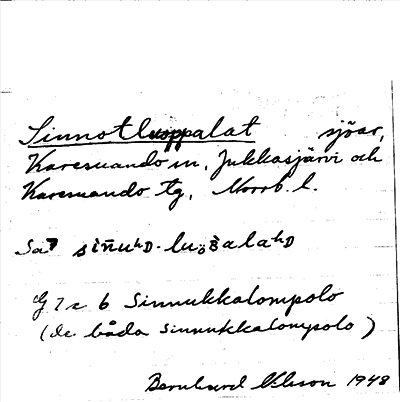 Sinnotluoppalat sjöar,
Karesuando sn, Jukkasjärvi och
Karesuando tg, Norrb. l.
G 7 c 6 Sinnukkalompolo
(de båda Sinnukkalompolo)
Bernhard Nilsson 1948